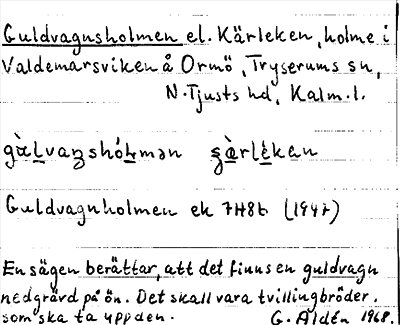 Guldvagnsholmen el. Kärleken, holme i
Valdemarsviken å Ormö, Tryserums sn,
N. Tjusts hd, Kalm. l.
gùlvaŋshólmən çàrléken
Guldvagnholmen ek 7H8b (1947)
En sägen berättar, att det finns en guldvagn
nedgrävd på ön. Det skall vara tvillingbröder
som ska ta upp den. G. Aldén 1968.